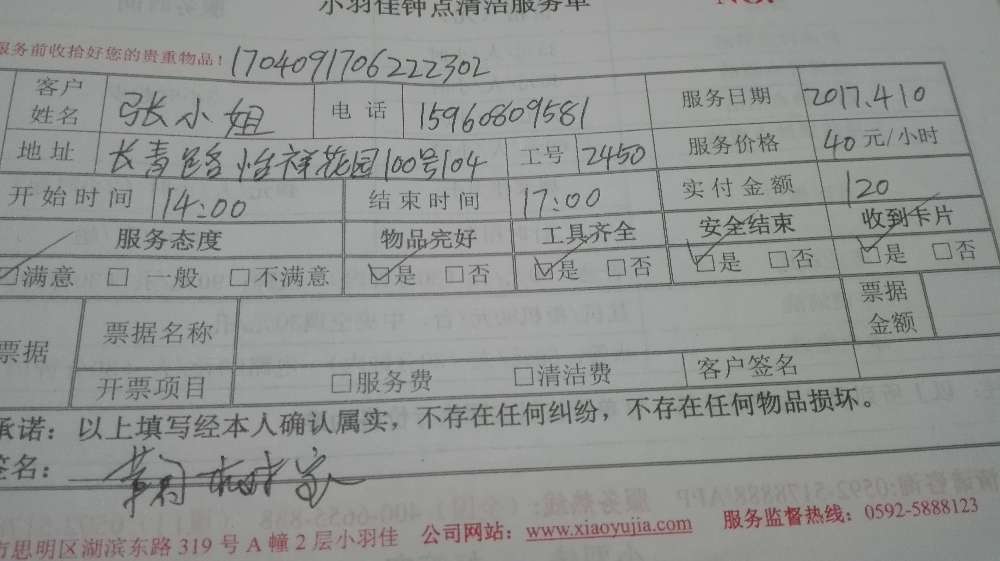 小羽佳钟点清洁服务单 NO:
服务前收拾好您的贵重物品! 1704091706222302
客户姓名 张小姐 电话 15960809581 服务日期 2017.4.10
地址 长青路怡祥花园100号104 工号 2450 服务价格 40元/小时
开始时间 14:00 结束时间 17:00 实付金额 120
服务态度 物品完好 工具齐全 安全结束 收到卡片
☑满意 □一般 □不满意 ☑是 □否 ☑是 □否 ☑是 □否 ☑是 □否
票据 票据名称 票据金额
开票项目 □服务费 □清洁费 客户签名
承诺：以上填写经本人确认属实，不存在任何纠纷，不存在任何物品损坏。
签名：
市思明区湖滨东路319号A幢2层小羽佳 公司网站：www.xiaoyujia.com 服务监督热线：0592-5888123